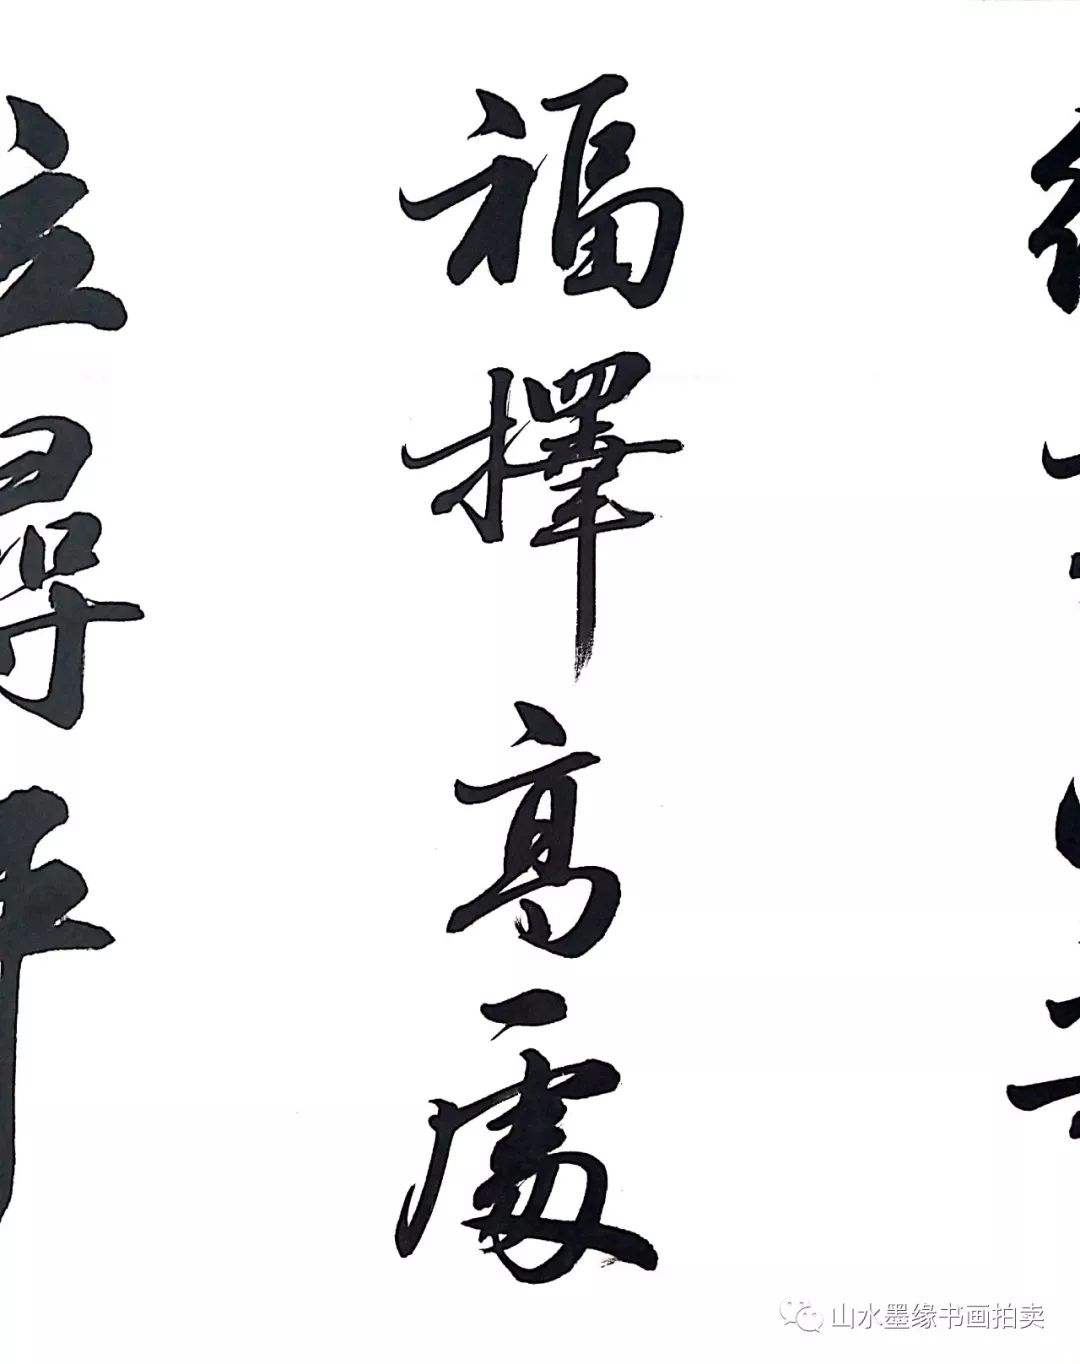 福擇高處
立尋平
山水墨缘书画拍卖